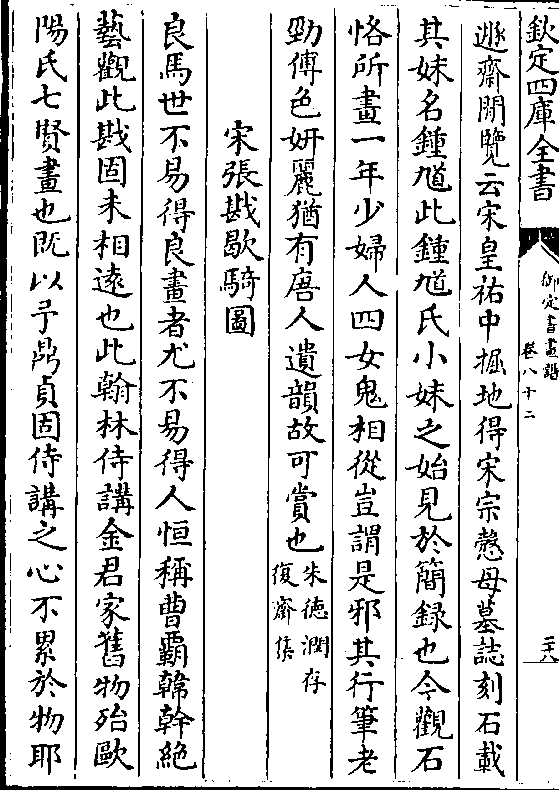 欽定四庫全書
御定書畫譜
卷八十二
二十八
遯齋閒覽云宋皇祐中掘地得宋宗愨母墓誌刻石載
其妹名鍾馗此鍾馗氏小妹之始見於簡錄也今觀石
恪所畫一年少婦人四女鬼相從豈謂是邪其行筆老
勁傅色妍麗猶有唐人遺韻故可賞也朱德潤存
復齋集
宋張戡歇騎圖
良馬世不易得良畫者尤不易得人恒稱曹霸韓幹絶
藝觀此戡固未相遠也此翰林侍講金君家舊物殆歐
陽氏七賢畫也既以予鼎貞固侍講之心不累於物耶